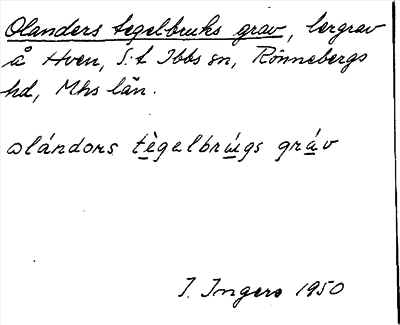 Olanders tegelbruks grav, lergrav
å Hven, S:t Ibbs sn, Rönnebergs
hd, Mhs län.
oländors tègelbrúgs gráv
I. Ingers 1950